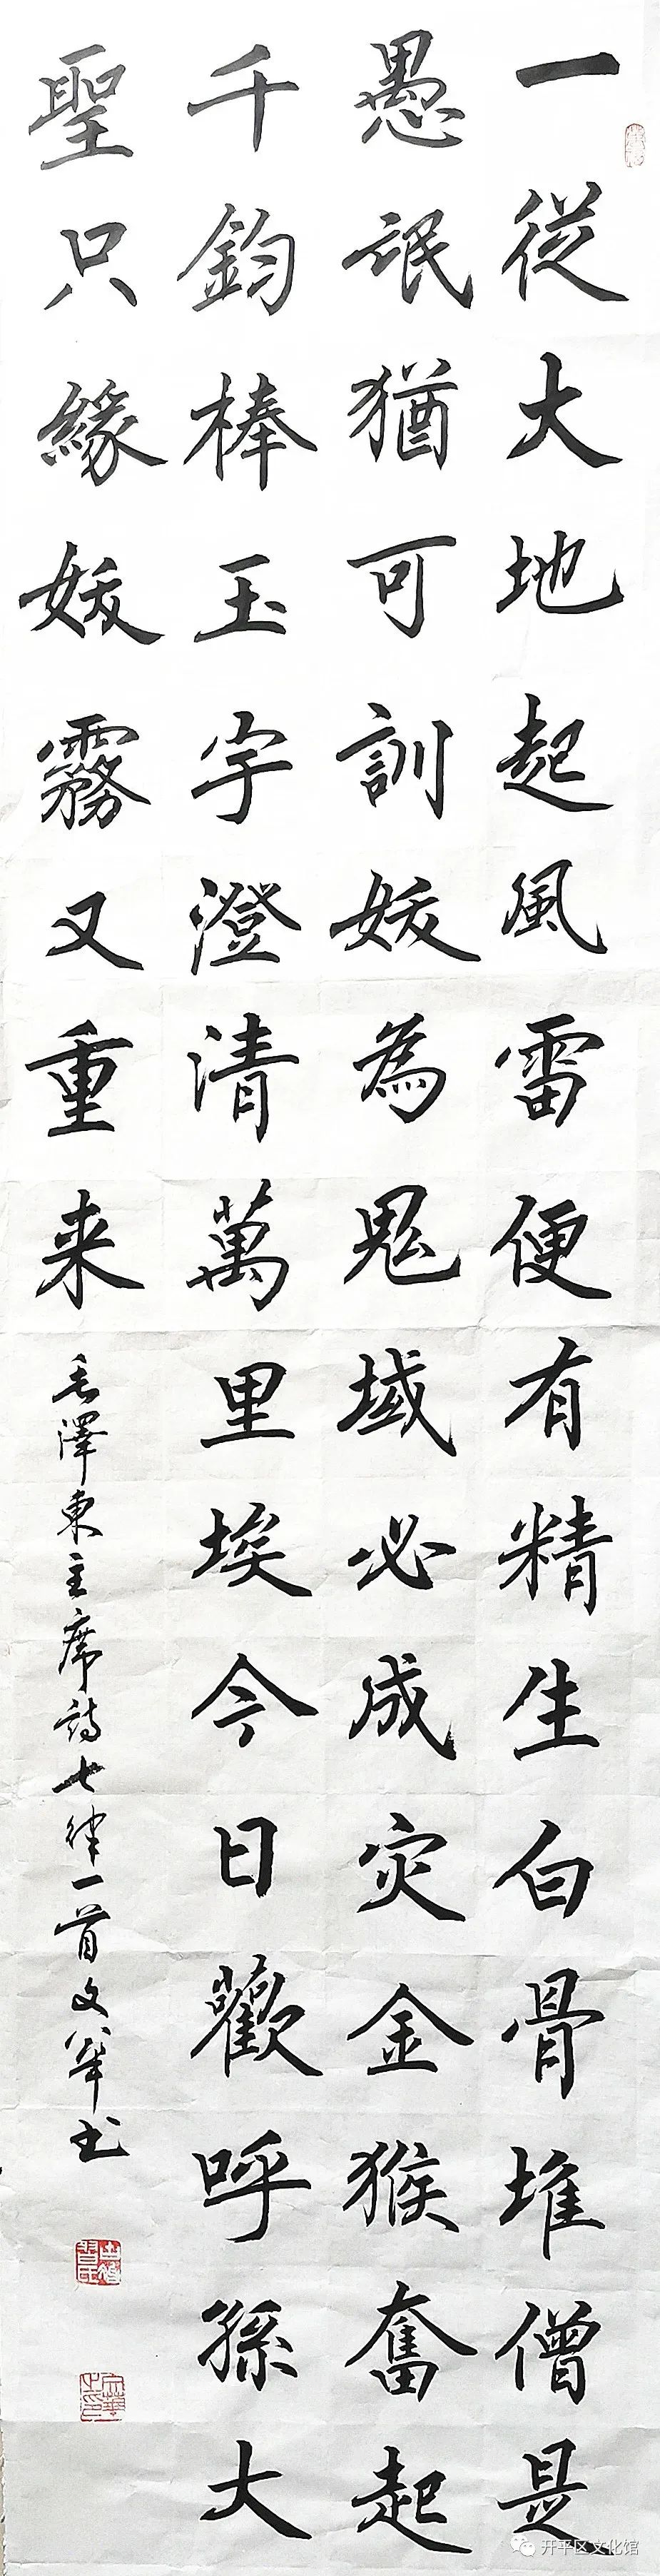 一從大地起風雷便有精生白骨堆僧是
愚氓猶可訓妖為鬼域必成灾金猴奮起
千鈞棒玉宇澄清萬里埃今日歡呼孫大
聖只緣妖霧又重来
毛澤東主席詩七律一首文華书
开平区文化馆